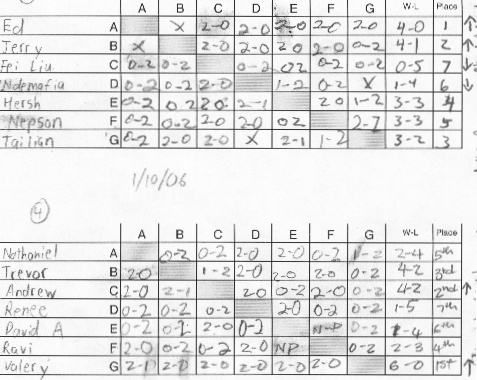 A B C D E F G W-L Place
Ed A X 2-0 2-0 2-0 2-0 2-0 4-0 1 ↑
Jerry B X 2-0 2-0 2 0 2-0 0-2 4-1 2 ↑
Fei Liu C 0-2 0-2 0-2 0 2 0-2 0-2 0-5 7 ↓
Ndemafia D 0-2 0-2 2-0 1-2 0-2 X 1-4 6 ↓
Hersh E 0-2 0 2 2 0 2-1 2 0 1-2 3-3 4
Nepson F 0-2 0-2 2-0 2-0 0 2 3-3 5
Tailian G 0-2 2-0 2-0 X 2-1 1-2 3-2 3
1/10/06
4
A B C D E F G W-L Place
Nathaniel A 0-2 0-2 2-0 2-0 0-2 1-2 2-4 5th
Trevor B 2-0 1-2 2-0 2-0 2-0 0-2 4-2 3rd
Andrew C 2-0 2-1 2-0 0-2 2-0 0-2 4-2 2nd ↑
Renee D 0-2 0-2 0-2 2-0 0-2 0-2 1-5 7th
David A E 0-2 0-2 2-0 0-2 N-P 0-2 1-4 6th
Ravi F 2-0 0-2 0-2 2-0 NP 0-2 2-3 4th
Valery G 2-1 2-0 2-0 2-0 2-0 2-0 6-0 1st ↑